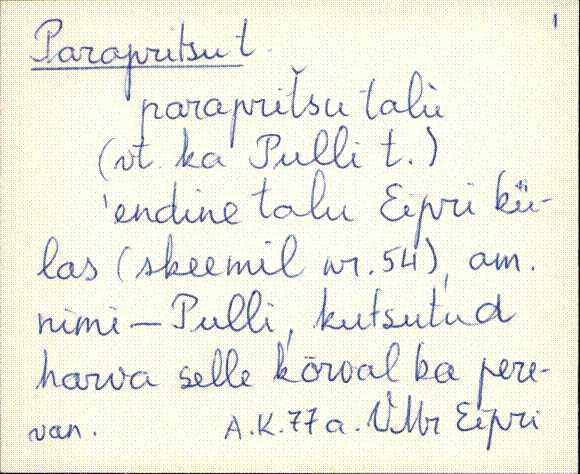 Parapritsu t.
parapritšu talù
(vt. ka Pulli t.)
'endine talu Eipri kü-
las (skeemil nr. 54), am.
nimi – Pulli, kutsutud
harva selle kõrval ka pere-
van. A.K. 77 a. VMr Eipri